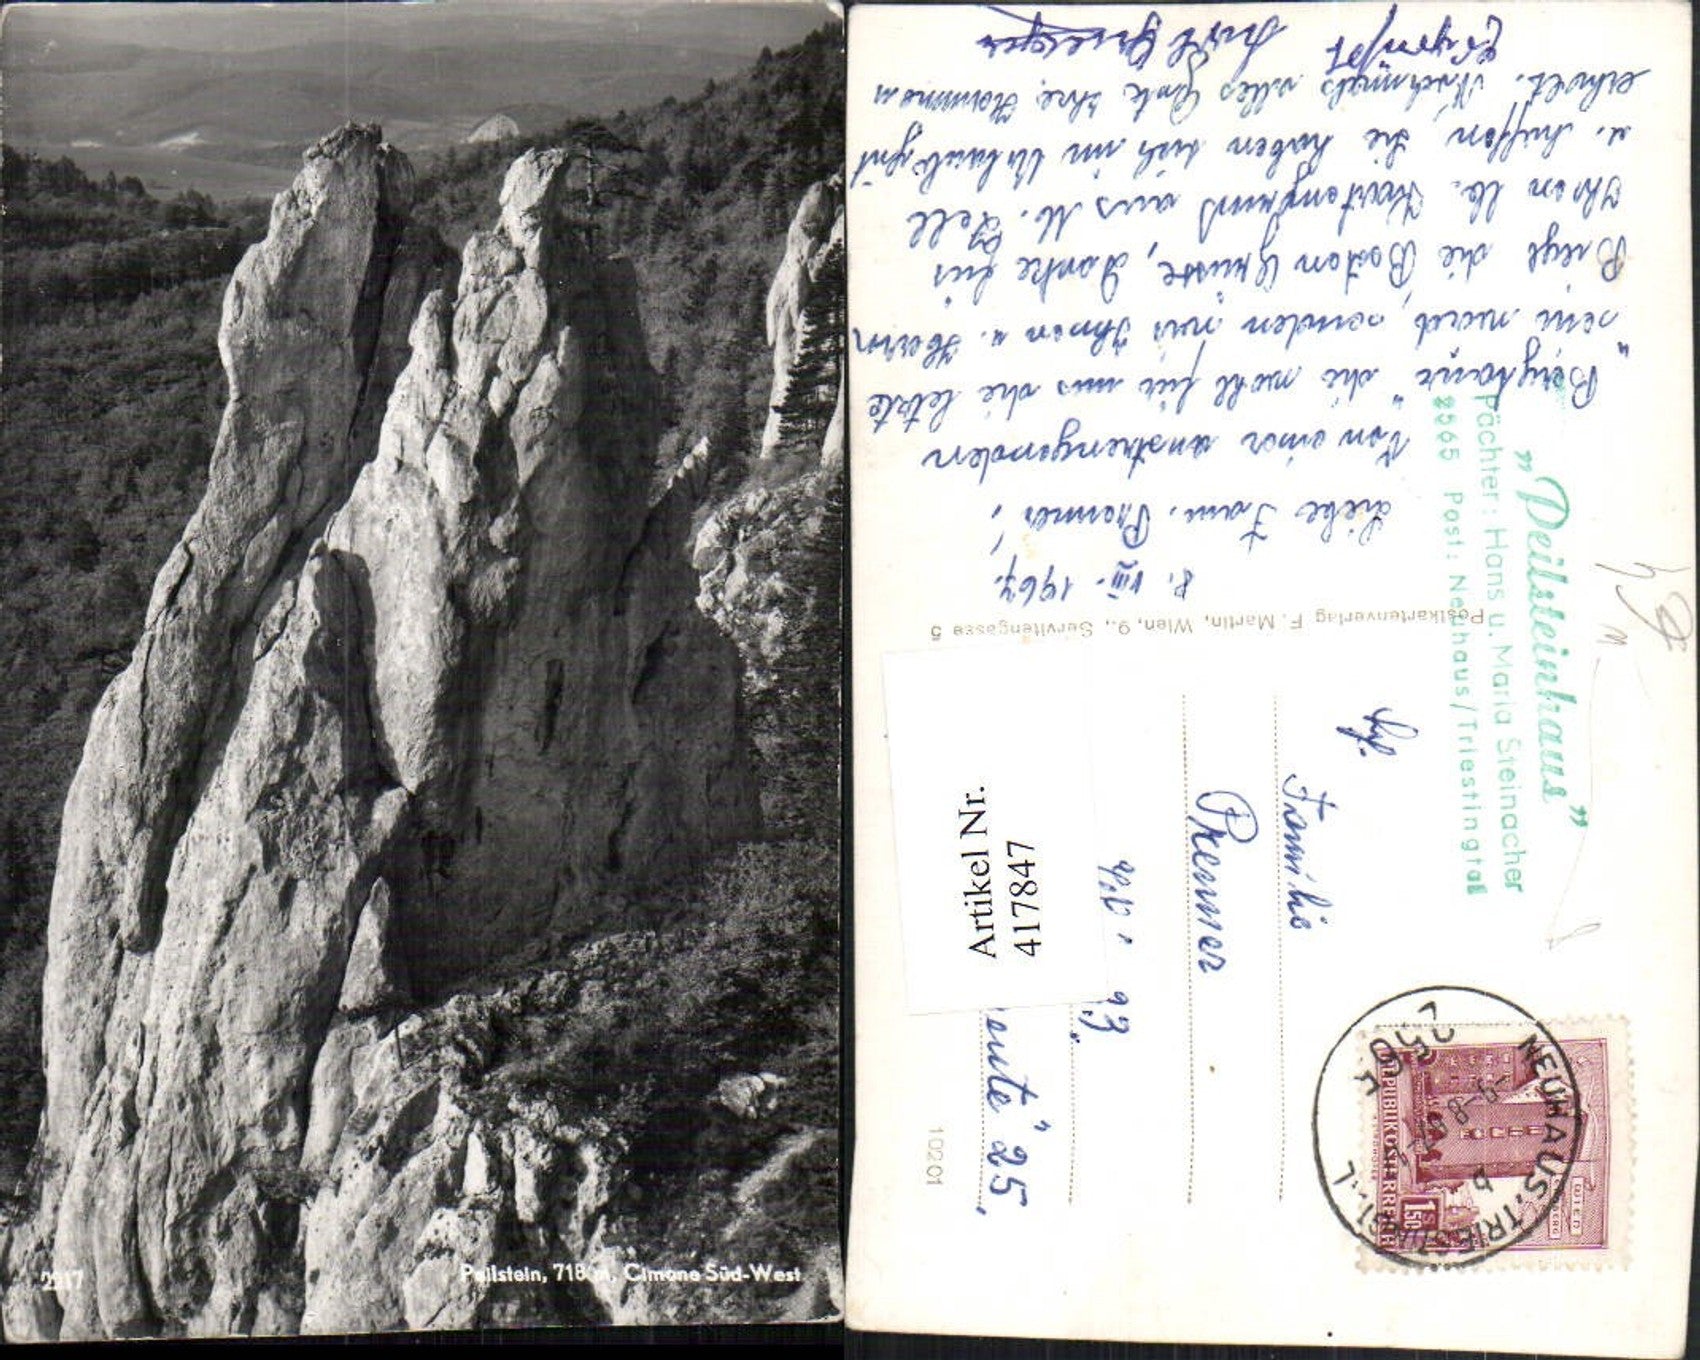 2217
Peilstein, 718 m, Cimone Süd-West
8. VIII. 1967.
Liebe Fam. Premner,
Von einer anstrengenden
"Bergtour" die wohl für uns die letzte
sein wird, senden wir Ihnen u. Herrn
die Besten Grüsse, Danke für
Ihren lb. Kartengruss aus M. Zell
u. hoffen, Sie haben sich im Urlaub gut
erholt. Nochmals alles Gute Ihre
"Peilsteinhaus"
Pächter: Hans u. Maria Steinacher
2565 Post: Neuhaus/Triestingtal
Postkartenverlag F. Martin, Wien, 9., Servitengasse 5
Familie
Premner
25,
Artikel Nr.
417847
10201
NEUHAUS, TRIESTINGTAL
2565
b
REPUBLIK ÖSTERREICH
1.50
WIEN